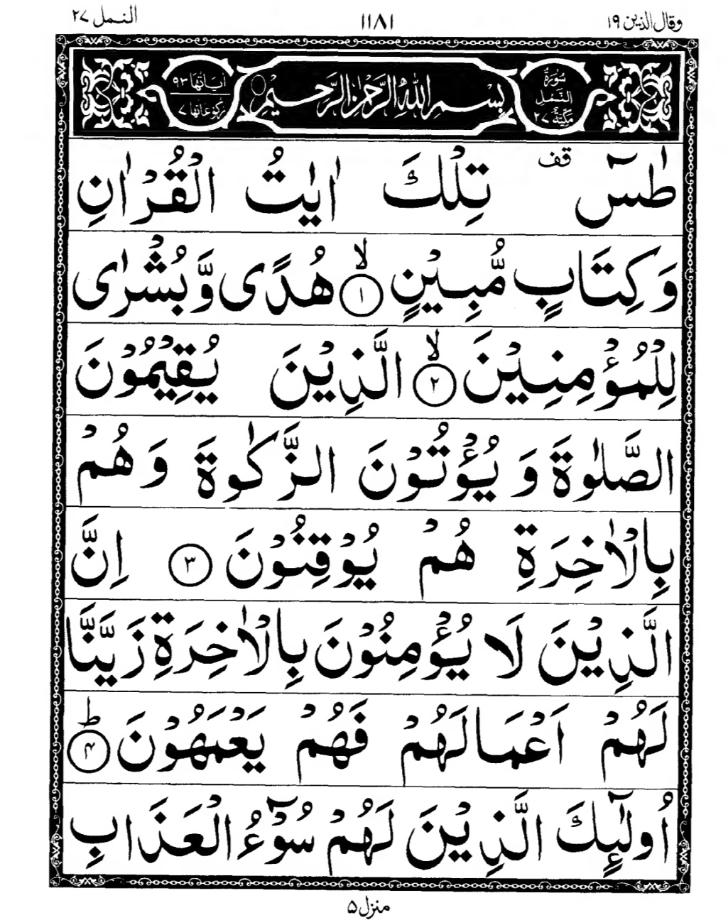 وقال الذين ١٩ ١١٨١ النمل ٢٧
سُورَةُ النَّمْلِ مَكِّيَّةٌ ٢٧ بِسْمِ اللهِ الرَّحْمٰنِ الرَّحِيْمِ اٰيَاتُهَا ٩٣ رُكُوْعَاتُهَا ٧
طٰسٓ قف تِلْكَ اٰيٰتُ الْقُرْاٰنِ
وَكِتَابٍ مُّبِيْنٍ ۙ﴿١﴾ هُدًى وَّبُشْرٰى
لِلْمُؤْمِنِيْنَ ۙ﴿٢﴾ الَّذِيْنَ يُقِيْمُوْنَ
الصَّلٰوةَ وَيُؤْتُوْنَ الزَّكٰوةَ وَهُمْ
بِالْاٰخِرَةِ هُمْ يُوْقِنُوْنَ ﴿٣﴾ اِنَّ
الَّذِيْنَ لَا يُؤْمِنُوْنَ بِالْاٰخِرَةِ زَيَّنَّا
لَهُمْ اَعْمَالَهُمْ فَهُمْ يَعْمَهُوْنَ ؕ﴿٤﴾
اُولٰٓئِكَ الَّذِيْنَ لَهُمْ سُوْٓءُ الْعَذَابِ
منزل ۵